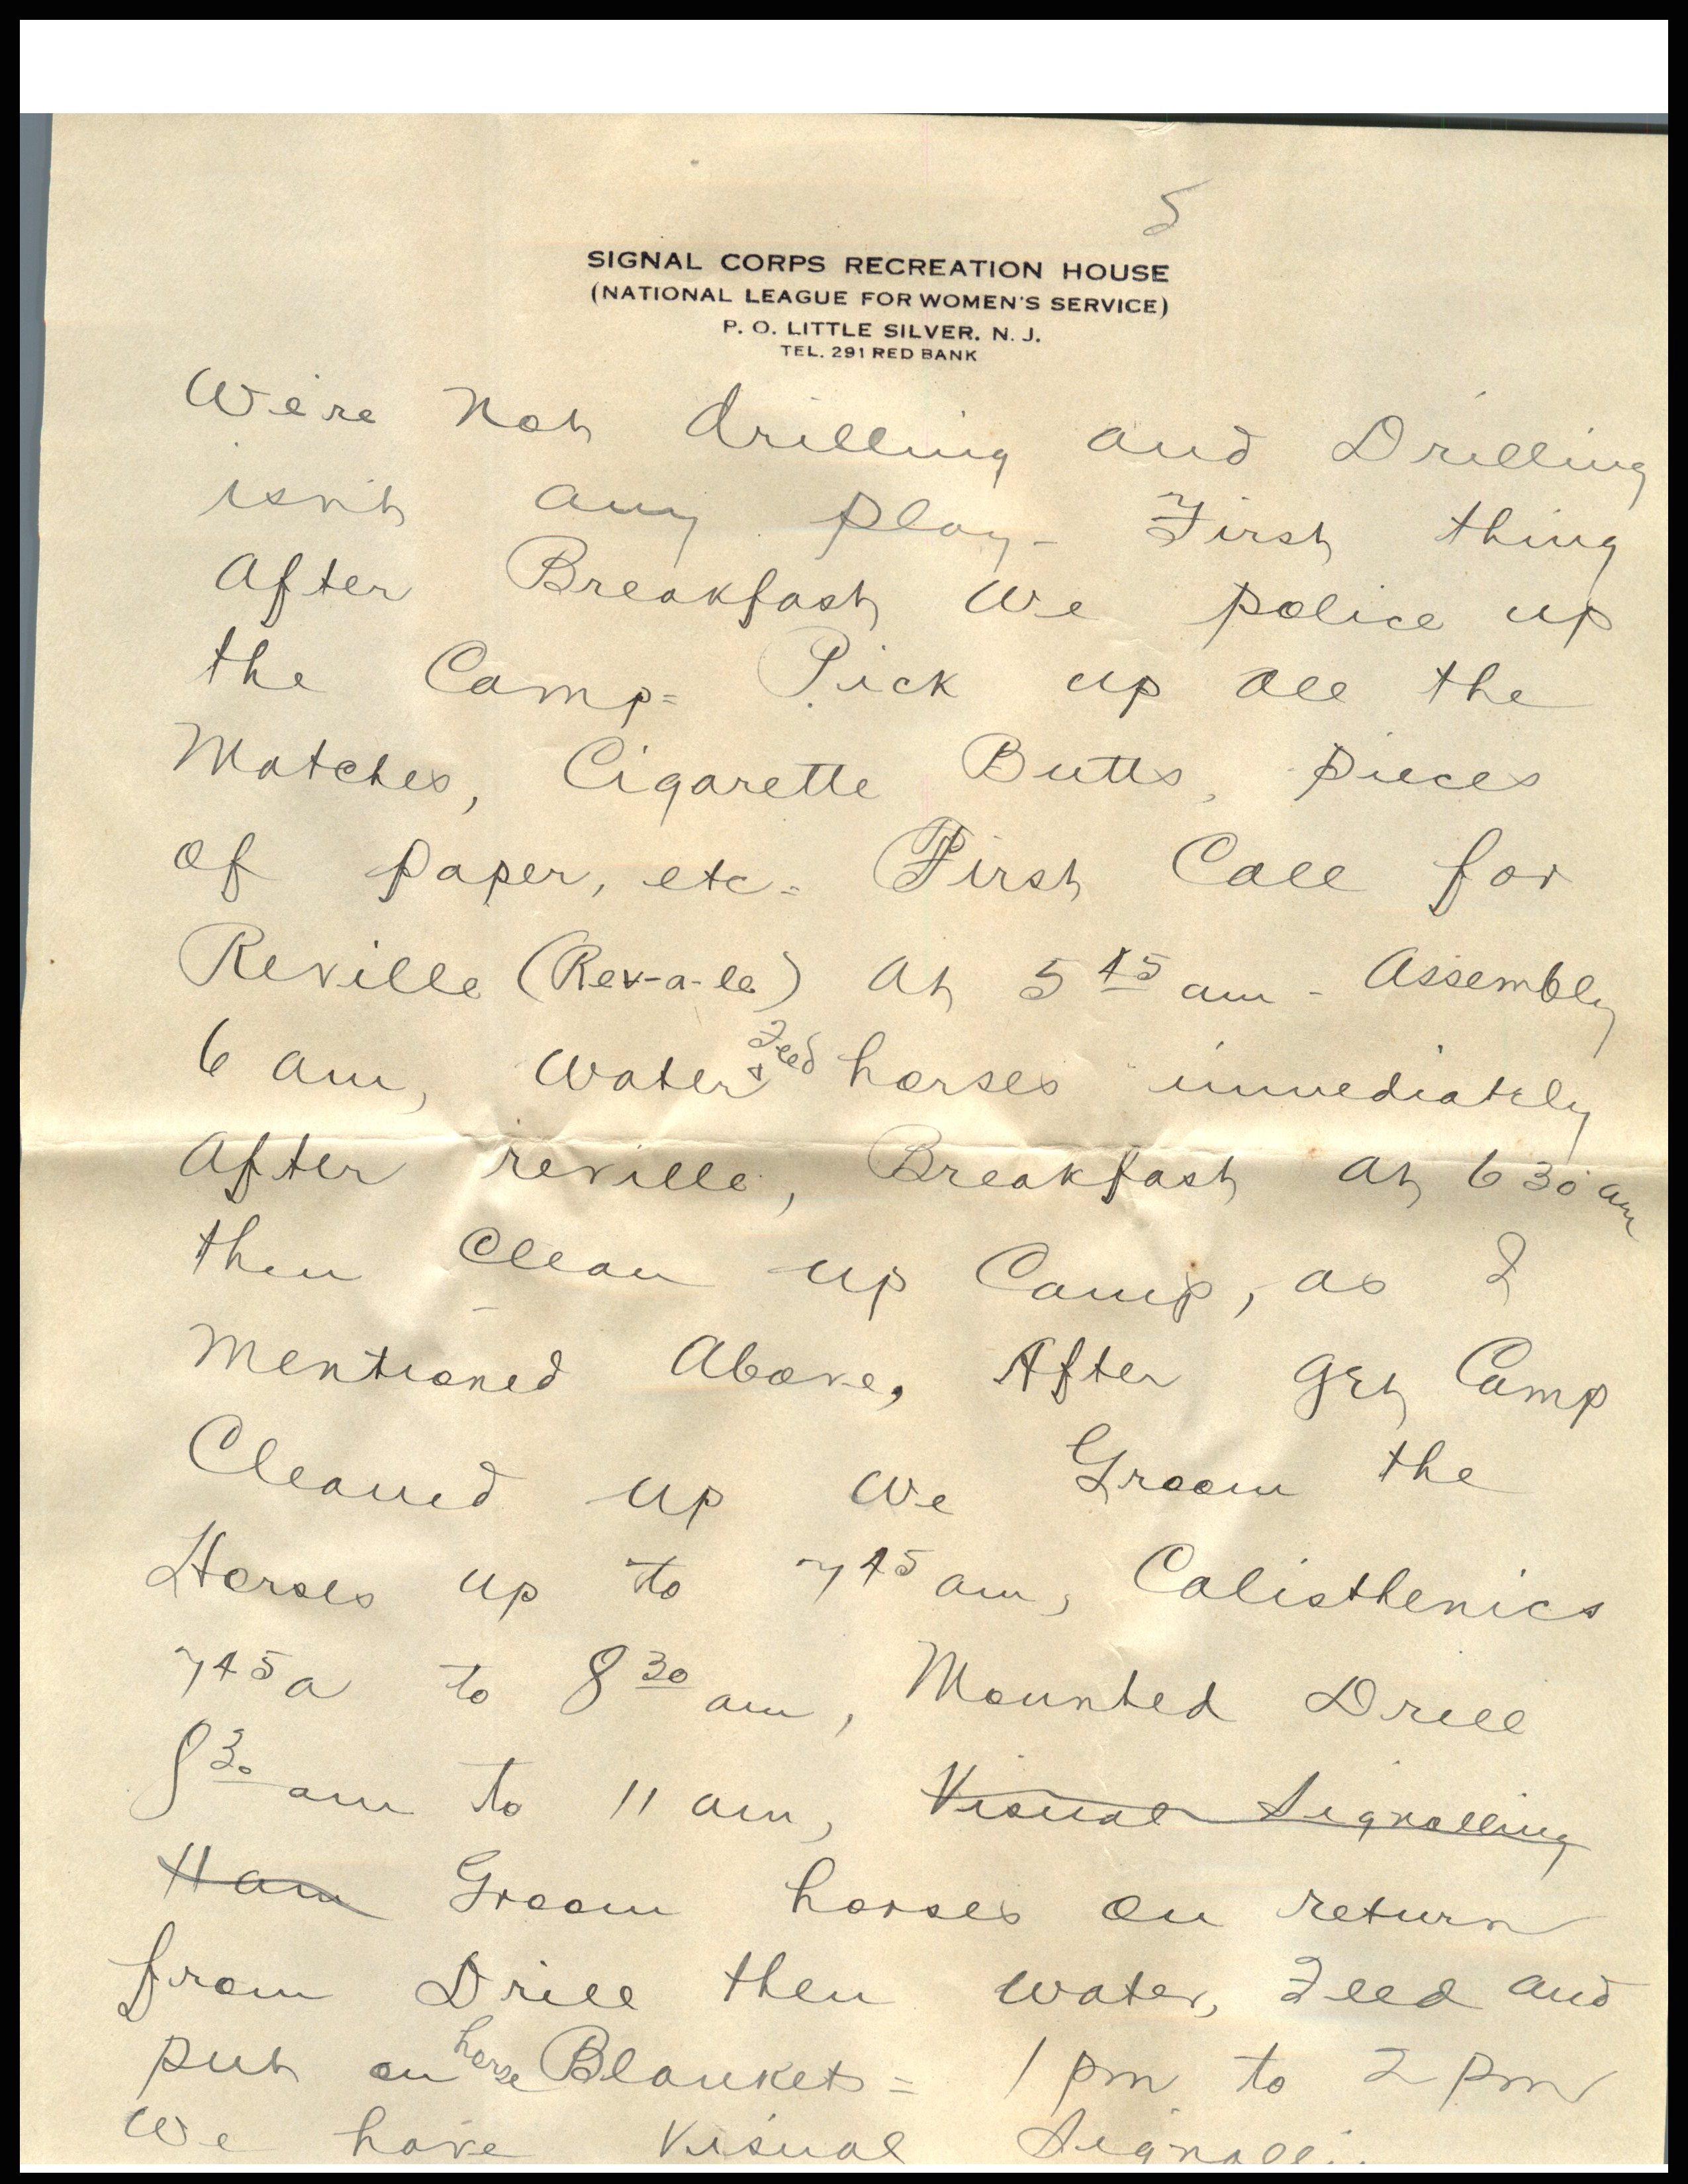 5
SIGNAL CORPS RECREATION HOUSE
(NATIONAL LEAGUE FOR WOMEN'S SERVICE)
P. O. LITTLE SILVER, N. J.
TEL. 291 RED BANK
We're not drilling and Drilling
isn't any play - First thing
After Breakfast We police up
the Camp = Pick up all the
Matches, Cigarette Butts, pieces
of paper, etc = First Call for
Reville (Rev-a-le) At 5 45 am - Assembly
6 am, Water & Feed horses immediately
After reville, Breakfast At 6 30 am
then Clean up Camp, as I
mentioned Above, After get Camp
Cleaned up We Groom the
Horses up to 7 45 am, Calisthenics
7 45 a to 8 30 am, Mounted Drill
8 30 am to 11 am, Visual Signalling
11 am Groom horses on return
from Drill then water, Feed and
put on horse Blankets = 1 pm to 2 pm
We have Visual